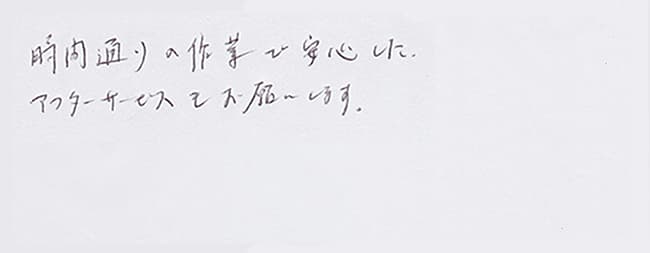 時間通りの作業で安心した.
アフターサービスもお願いします.